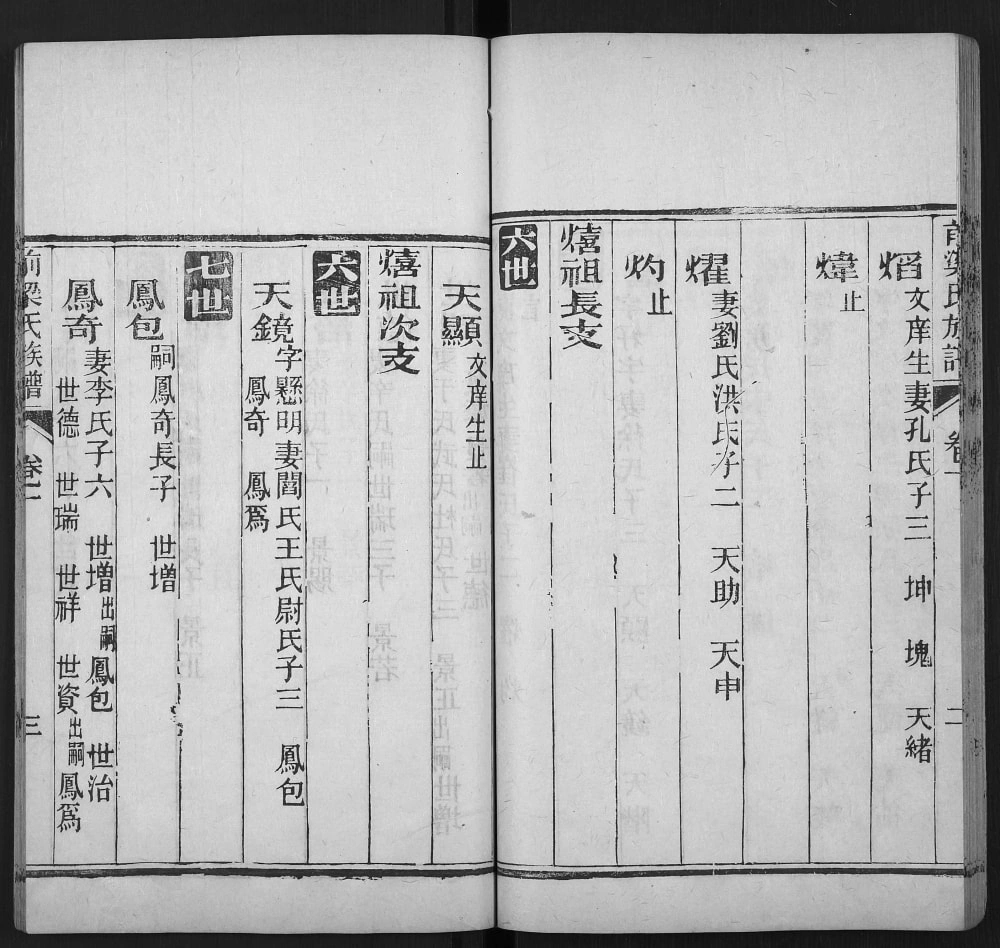 前梁氏族譜 卷一 二
熖 文庠生妻孔氏子三 坤 塊 天緒
煒 止
燿 妻劉氏洪氏子二 天助 天申
灼 止
熺祖長支
六世
天顯 文庠生止
熺祖次支
六世
天鏡 字懸明妻閻氏王氏尉氏子三 鳳包
鳳奇 鳳爲
七世
鳳包 嗣鳳奇長子 世增
鳳奇 妻李氏子六 世增出嗣鳳包 世治
世德 世瑞 世祥 世資出嗣鳳爲
前梁氏族譜 卷一 三